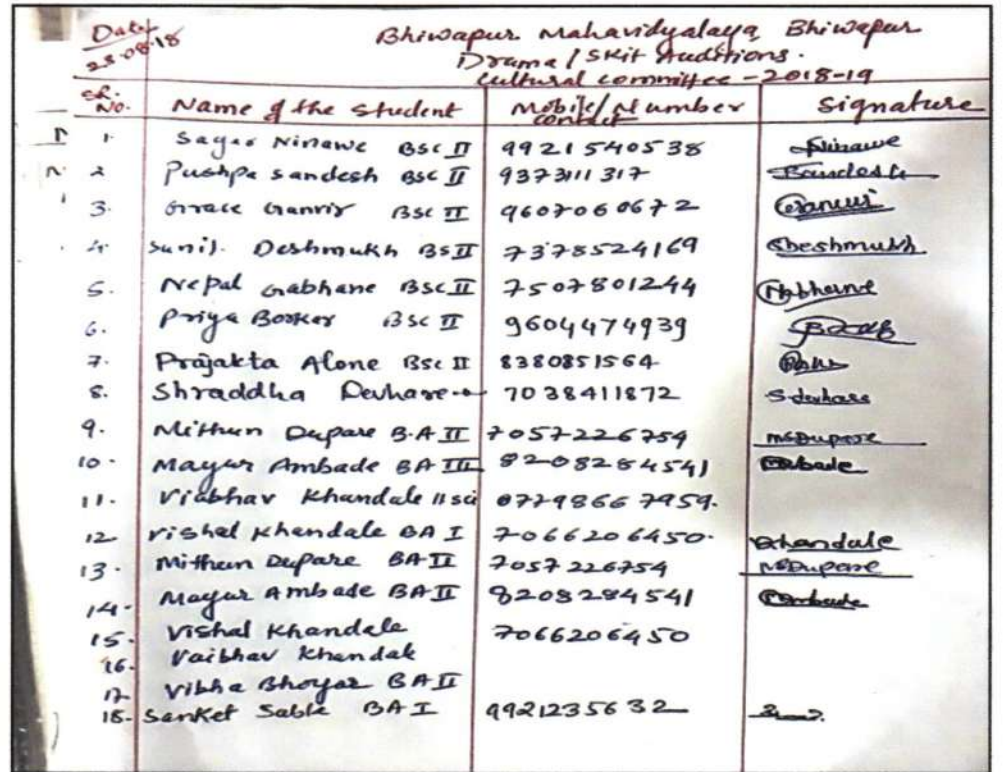 Date
25-08-18
Bhiwapur Mahavidyalaya, Bhiwapur
Drama/Skit Auditions.
Cultural committee - 2018-19
Sr. No. Name of the Student Mobile/Number contact Signature
1. Sagar Ninawe BSC II 9921540538 Ninawe
2 Pushpa Sandesh BSC II 9373111317
3. Grace Ganvir BSC II 9607060672
4. Sunil. Deshmukh BS II 7378524169 Deshmukh
5. Nepal Gabhane BSC II 7507801244
6. Priya Borkar BSC II 9604474939
7. Prajakta Alone BSC II 8380851564
8. Shraddha Devhare 7038411872 S.devhare
9. Mithun Dupare B.A II 7057226754 MSDupare
10. Mayur Ambade BA III 8208284541 Ambade
11. Viabhav Khandale II sci 07798667959.
12 Vishal Khandale BA I 7066206450. Khandale
13. Mithun Dupare BA II 7057226754 MSDupare
14. Mayur Ambade BA II 8208284541 Ambade
15. Vishal Khandale 7066206450
16. Vaibhav Khandal
17 Vibha Bhoyar BA II
18. Sanket Sable BA I 9921235632